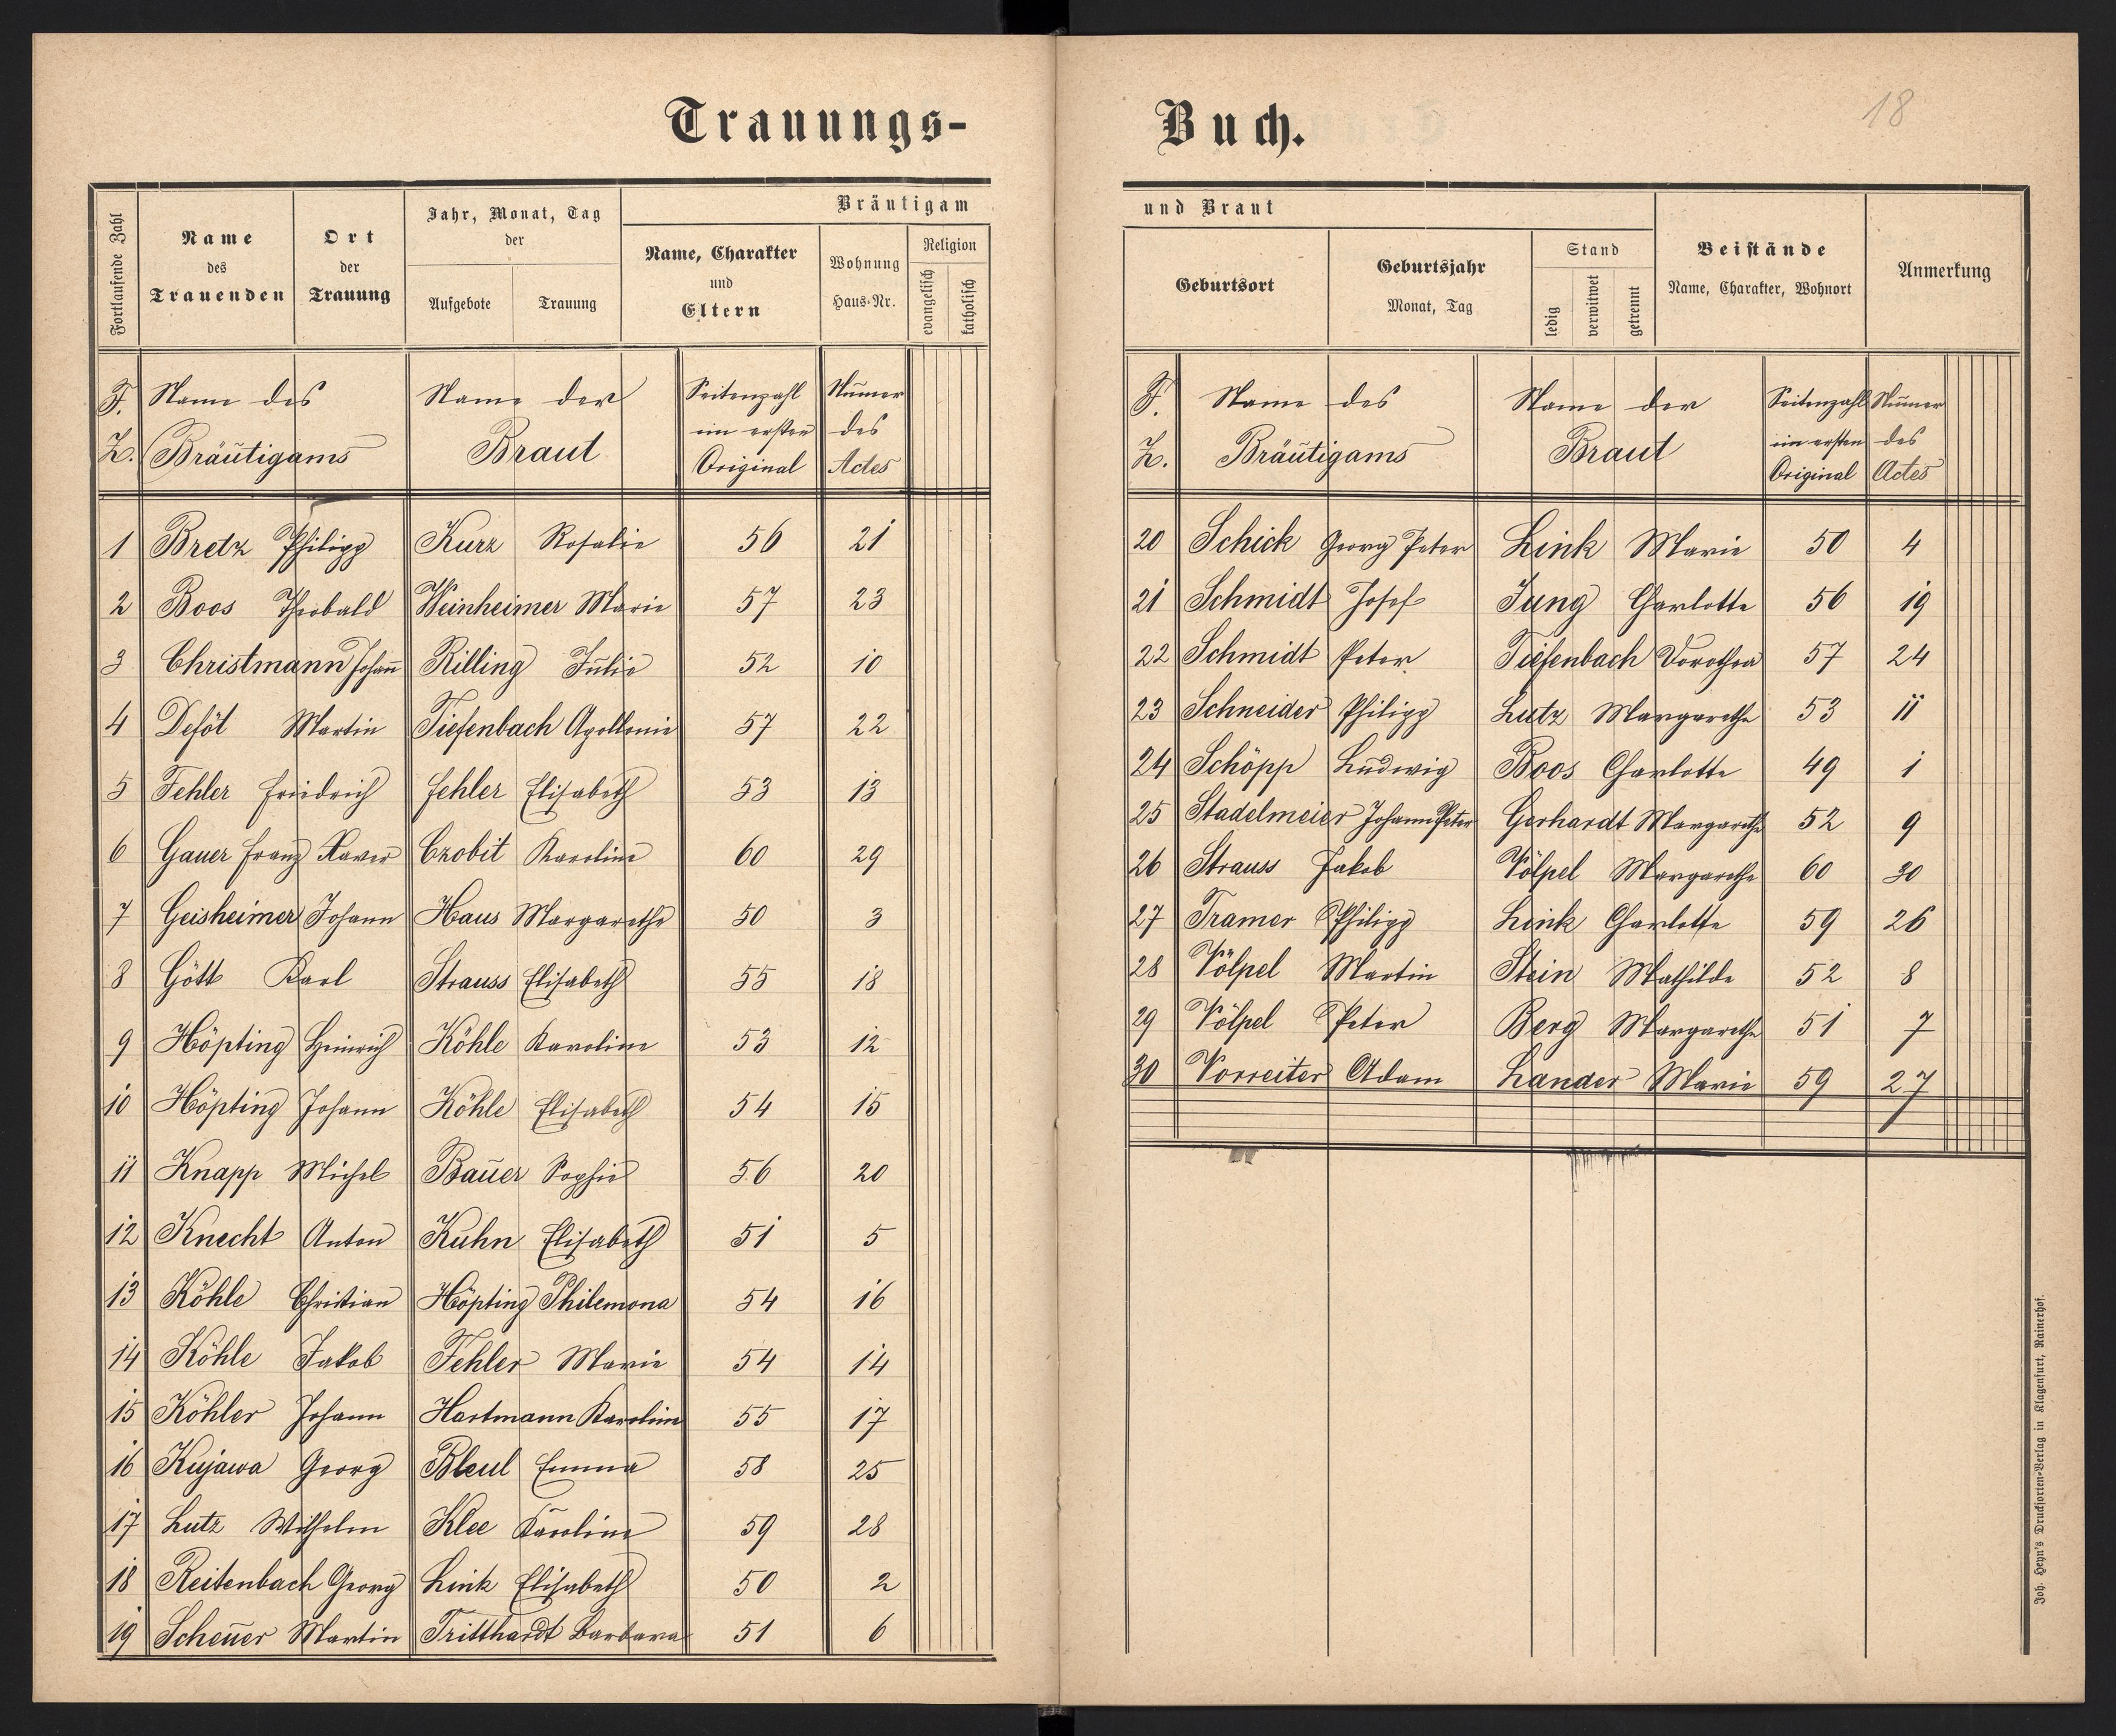 Trauungs-
Fortlaufende Zahl
Name
des
Trauenden
Ort
der
Trauung
Jahr, Monat, Tag
der
Aufgebote
Trauung
Bräutigam
Name, Charakter
und
Eltern
Wohnung
Haus-Nr.
Religion
evangelisch
katholisch
F. Z. Name des Bräutigams
Name der Braut
Seitenzahl im ersten Original
Numer des Actes
1 Bretz Philipp Kurz Rosalie 56 21
2 Boos Theobald Weinheimer Marie 57 23
3 Christmann Johann Rilling Julie 52 10
4 Deföt Martin Tiefenbach Apollonie 57 22
5 Fehler Friedrich Fehler Elisabeth 53 13
6 Gauer Franz Xaver Czobit Karoline 60 29
7 Geisheimer Johann Haus Margarethe 50 3
8 Gött Karl Strauss Elisabeth 55 18
9 Höpting Heinrich Köhle Karoline 53 12
10 Höpting Johann Köhle Elisabeth 54 15
11 Knapp Michel Bauer Sophie 56 20
12 Knecht Anton Kuhn Elisabeth 51 5
13 Köhle Christian Höpting Philemona 54 16
14 Köhle Jakob Fehler Marie 54 14
15 Köhler Johann Hartmann Karoline 55 17
16 Kujawa Georg Bleul Emma 58 25
17 Lutz Wilhelm Klee Karoline 59 28
18 Reitenbach Georg Link Elisabeth 50 2
19 Scheuer Martin Tritthardt Barbara 51 6
Buch.
18
und Braut
Geburtsort
Geburtsjahr
Monat, Tag
Stand
ledig
verwitwet
getrennt
Beistände
Name, Charakter, Wohnort
Anmerkung
F. Z. Name des Bräutigams
Name der Braut
Seitenzahl im ersten Original
Numer des Actes
20 Schick Georg Peter Link Marie 50 4
21 Schmidt Josef Jung Charlotte 56 19
22 Schmidt Peter Tiefenbach Dorothea 57 24
23 Schneider Philipp Lutz Margarethe 53 11
24 Schöpp Ludwig Boos Charlotte 49 1
25 Stadelmeier Johann Peter Gerhardt Margarethe 52 9
26 Strauss Jakob Völpel Margarethe 60 30
27 Tramer Philipp Link Charlotte 59 26
28 Völpel Martin Stein Mathilde 52 8
29 Völpel Peter Berg Margarethe 51 7
30 Vorreiter Adam Lander Marie 59 27
Joh. Heyn's Drucksorten-Verlag in Klagenfurt, Rainerhof.